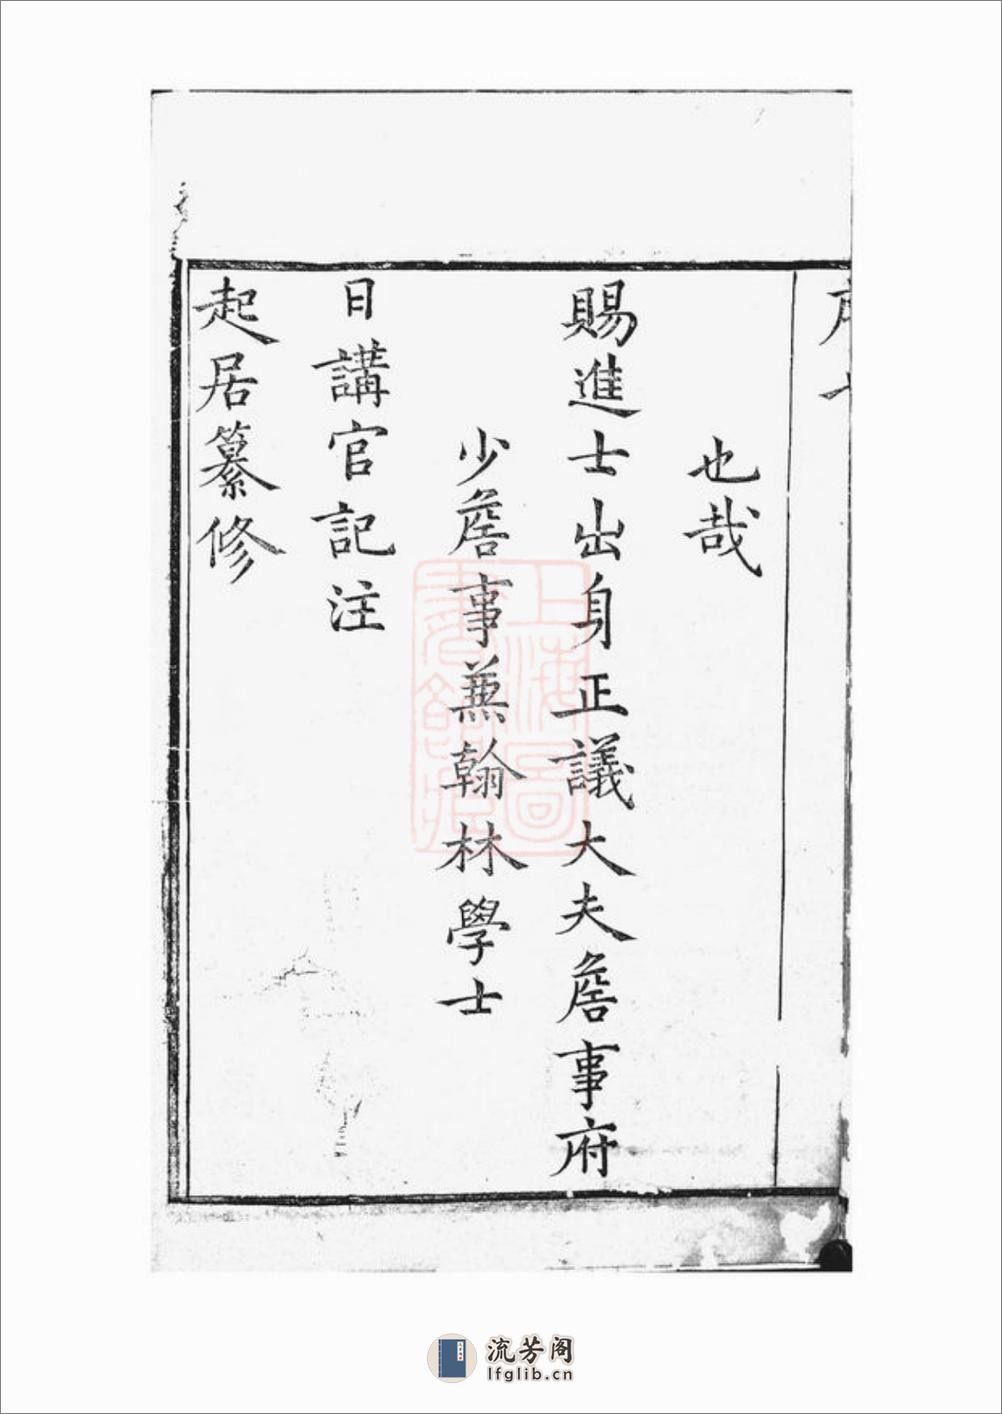 也哉
賜進士出身正議大夫詹事府
少詹事蒹翰林學士
日講官記注
起居纂修
上海圖書館藏
流芳阁
lfglib.cn